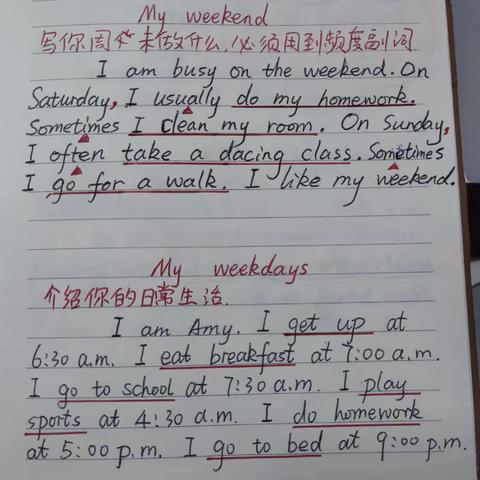 My weekend
写你周末做什么,必须用到频度副词
I am busy on the weekend. On
Saturday, I usually do my homework.
Sometimes I clean my room. On Sunday,
I often take a dacing class. Sometimes
I go for a walk. I like my weekend.
My weekdays
介绍你的日常生活.
I am Amy. I get up at
6:30 a.m. I eat breakfast at 7:00 a.m.
I go to school at 7:30 a.m. I play
sports at 4:30 a.m. I do homework
at 5:00 p.m. I go to bed at 9:00 p.m.